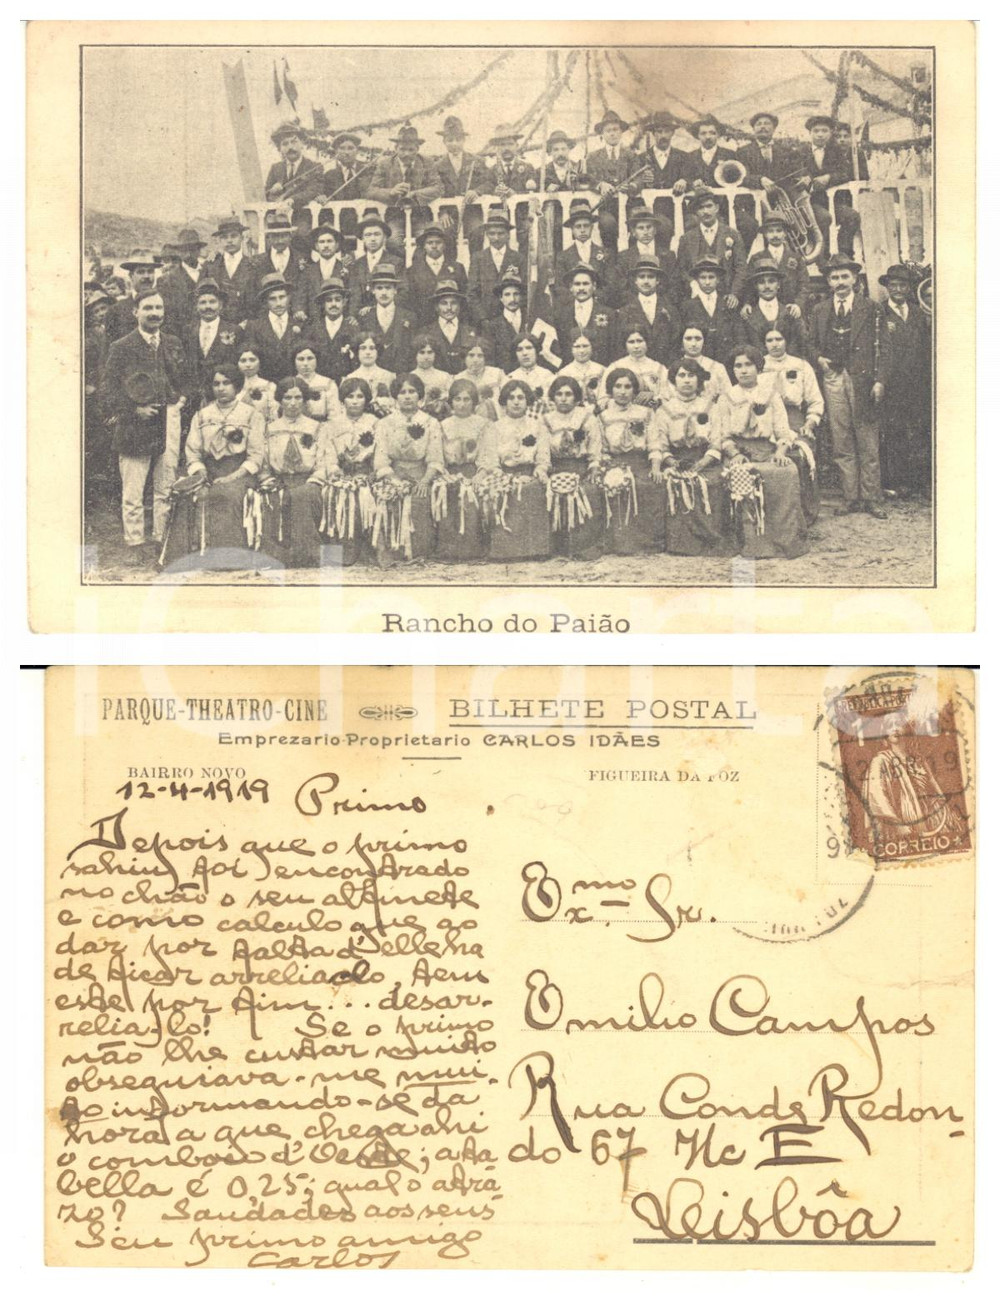 Rancho do Paião
PARQUE-THEATRO-CINE BILHETE POSTAL
Emprezario-Proprietario CARLOS IDÃES
BAIRRO NOVO FIGUEIRA DA FOZ
12-4-1919 Primo
Depois que o primo
sahiu foi encontrado
no chão o seu alfinete
e como calculo que ao
dar por falta d'elle ha
de ficar arreliado, tem
este por fim... desar-
relia-lo! Se o primo
não lhe custar muito
obsequiava-me mui-
to informando-se da
hora a que chega ahi
o comboio d'Oeste; a ta
bella é 0,25; qual o atra
zo? Saudades aos seus
Seu primo amigo
Carlos
Exmo. Sr.
Emilio Campos
Rua Conde Redon-
do 67 E
Lisbôa
CORREIO
12 ABR 19
iCharta